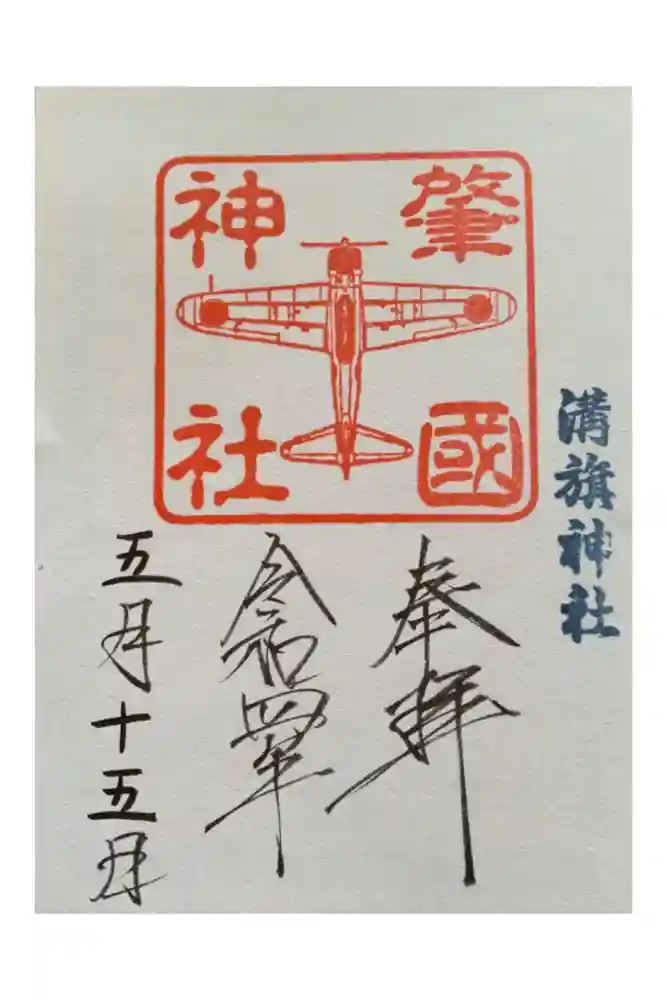 肇國
神社
溝旗神社
奉拝
令和四年
五月十五月